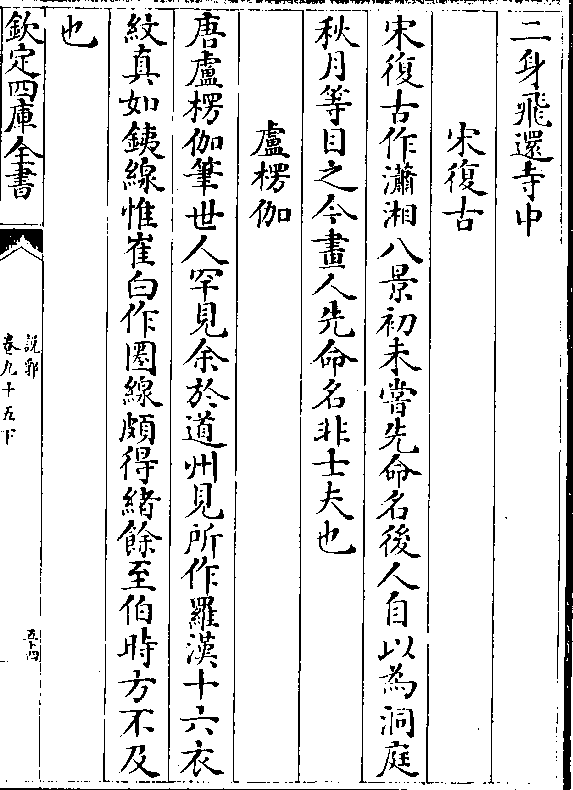 二身飛還寺中
宋復古
宋復古作瀟湘八景初未嘗先命名後人自以為洞庭
秋月等目之今畫人先命名非士夫也
盧楞伽
唐盧楞伽筆世人罕見余於道州見所作羅漢十六衣
紋真如鐵線惟崔白作圈線頗得緒餘至伯時方不及
也
欽定四庫全書
說郛
卷九十五下
五十四